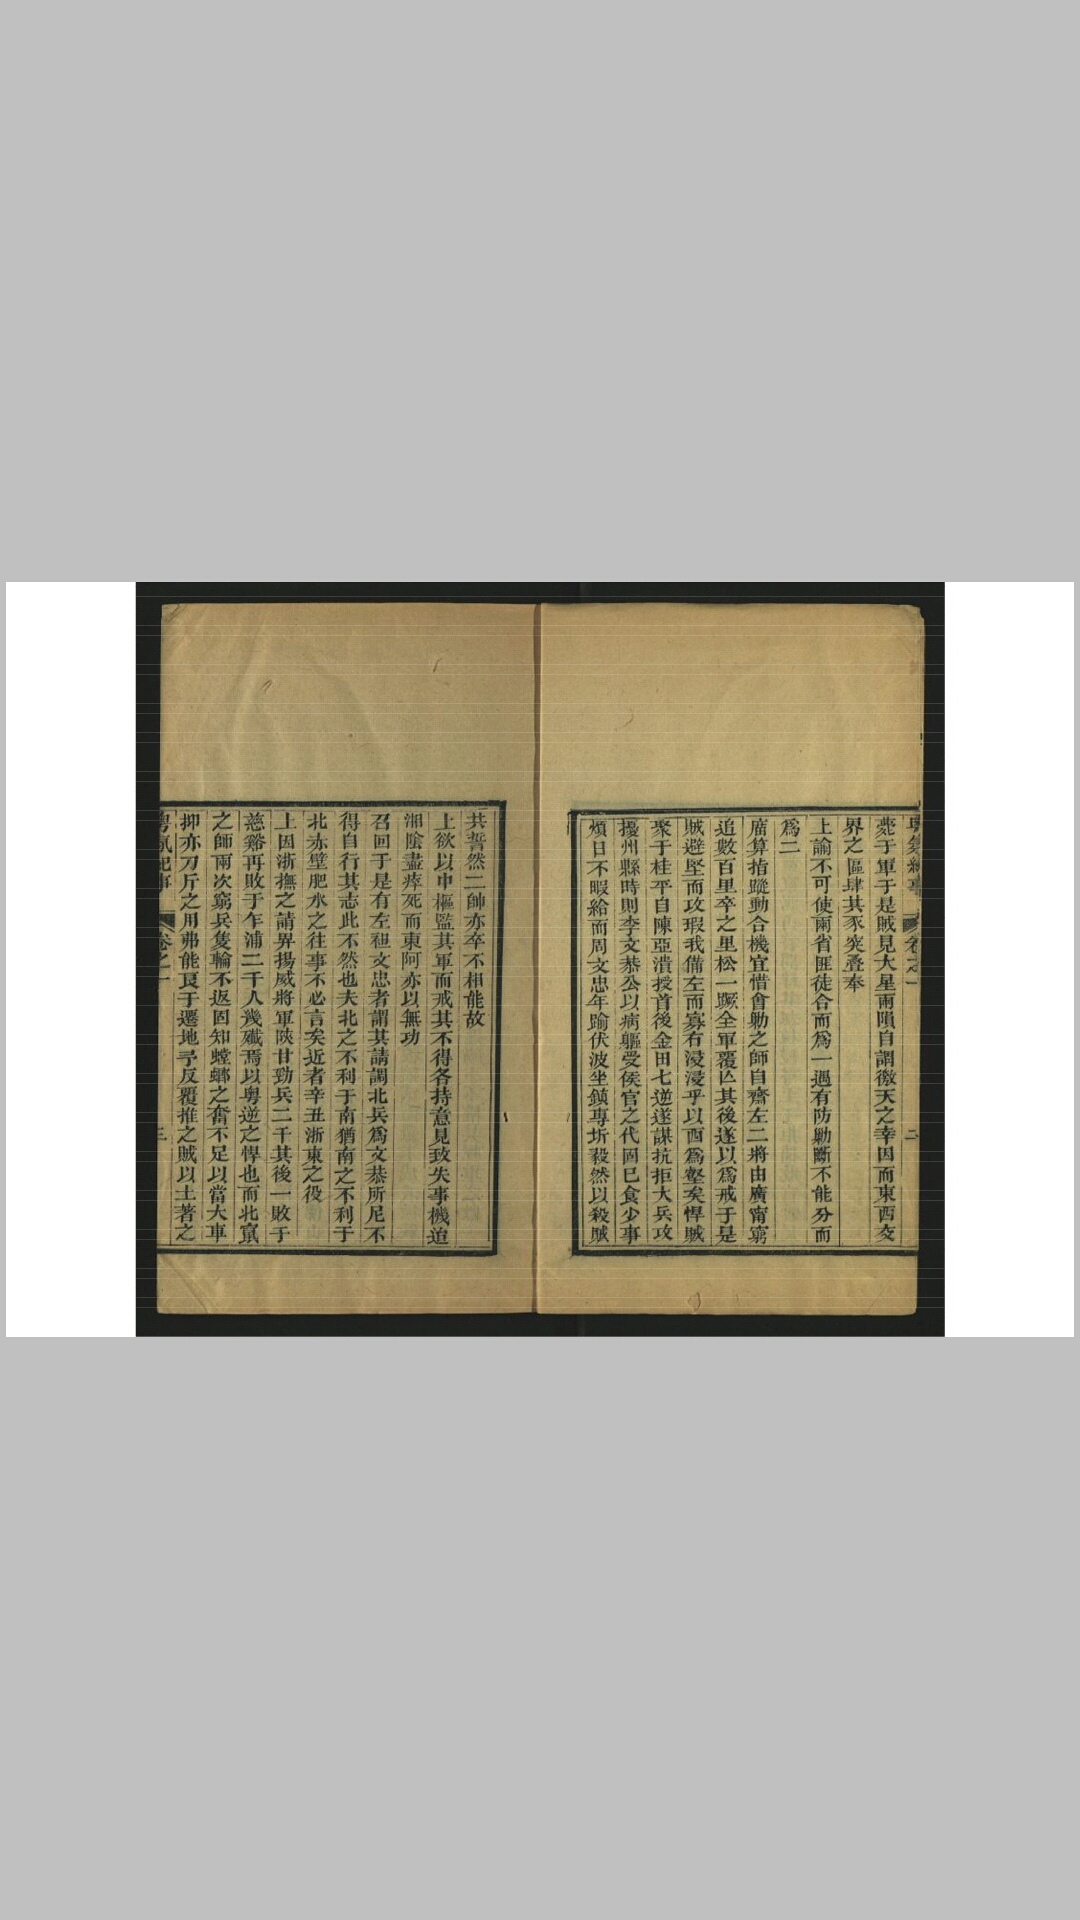 薨于軍于是賊見大星兩隕自謂徼天之幸因而東西交
界之區肆其豕突疊奉
上諭不可使兩省匪徒合而爲一遇有防勦斷不能分而
爲二
廣算指蹤動合機宜惜會勦之師自齋左二將由廣甯窮
追數百里卒之里松一蹶全軍覆亡其後遂以爲戒于是
賊避堅而攻瑕我備左而寡右浸浸乎以西爲壑矣悍賊
聚于桂平自陳亞潰授首後金田七逆遂謀抗拒大兵攻
擾州縣時則李文恭公以病軀受侯官之代固已食少事
煩日不暇給而周文忠年踰伏波坐鎮專圻毅然以殺賊
共誓然二帥亦卒不相能故
上欲以中樞監其軍而戒其不得各持意見致失事機迨
湘陰盡瘁死而東阿亦以無功
召回于是有左袒文忠者謂其請調北兵爲文恭所尼不
得自行其志此不然也夫北之不利于南猶南之不利于
北赤壁肥水之往事不必言矣近者辛丑浙東之役
上因浙撫之請畀揚威將軍陝甘勁兵二千其後一敗于
慈谿再敗于乍浦二千人幾殲焉以粵逆之悍也而北竄
之師兩次窮兵隻輪不返固知螳螂之奮不足以當大車
抑亦刀斤之用弗能良于遷地予反覆推之賊以土著之
卷之一
三